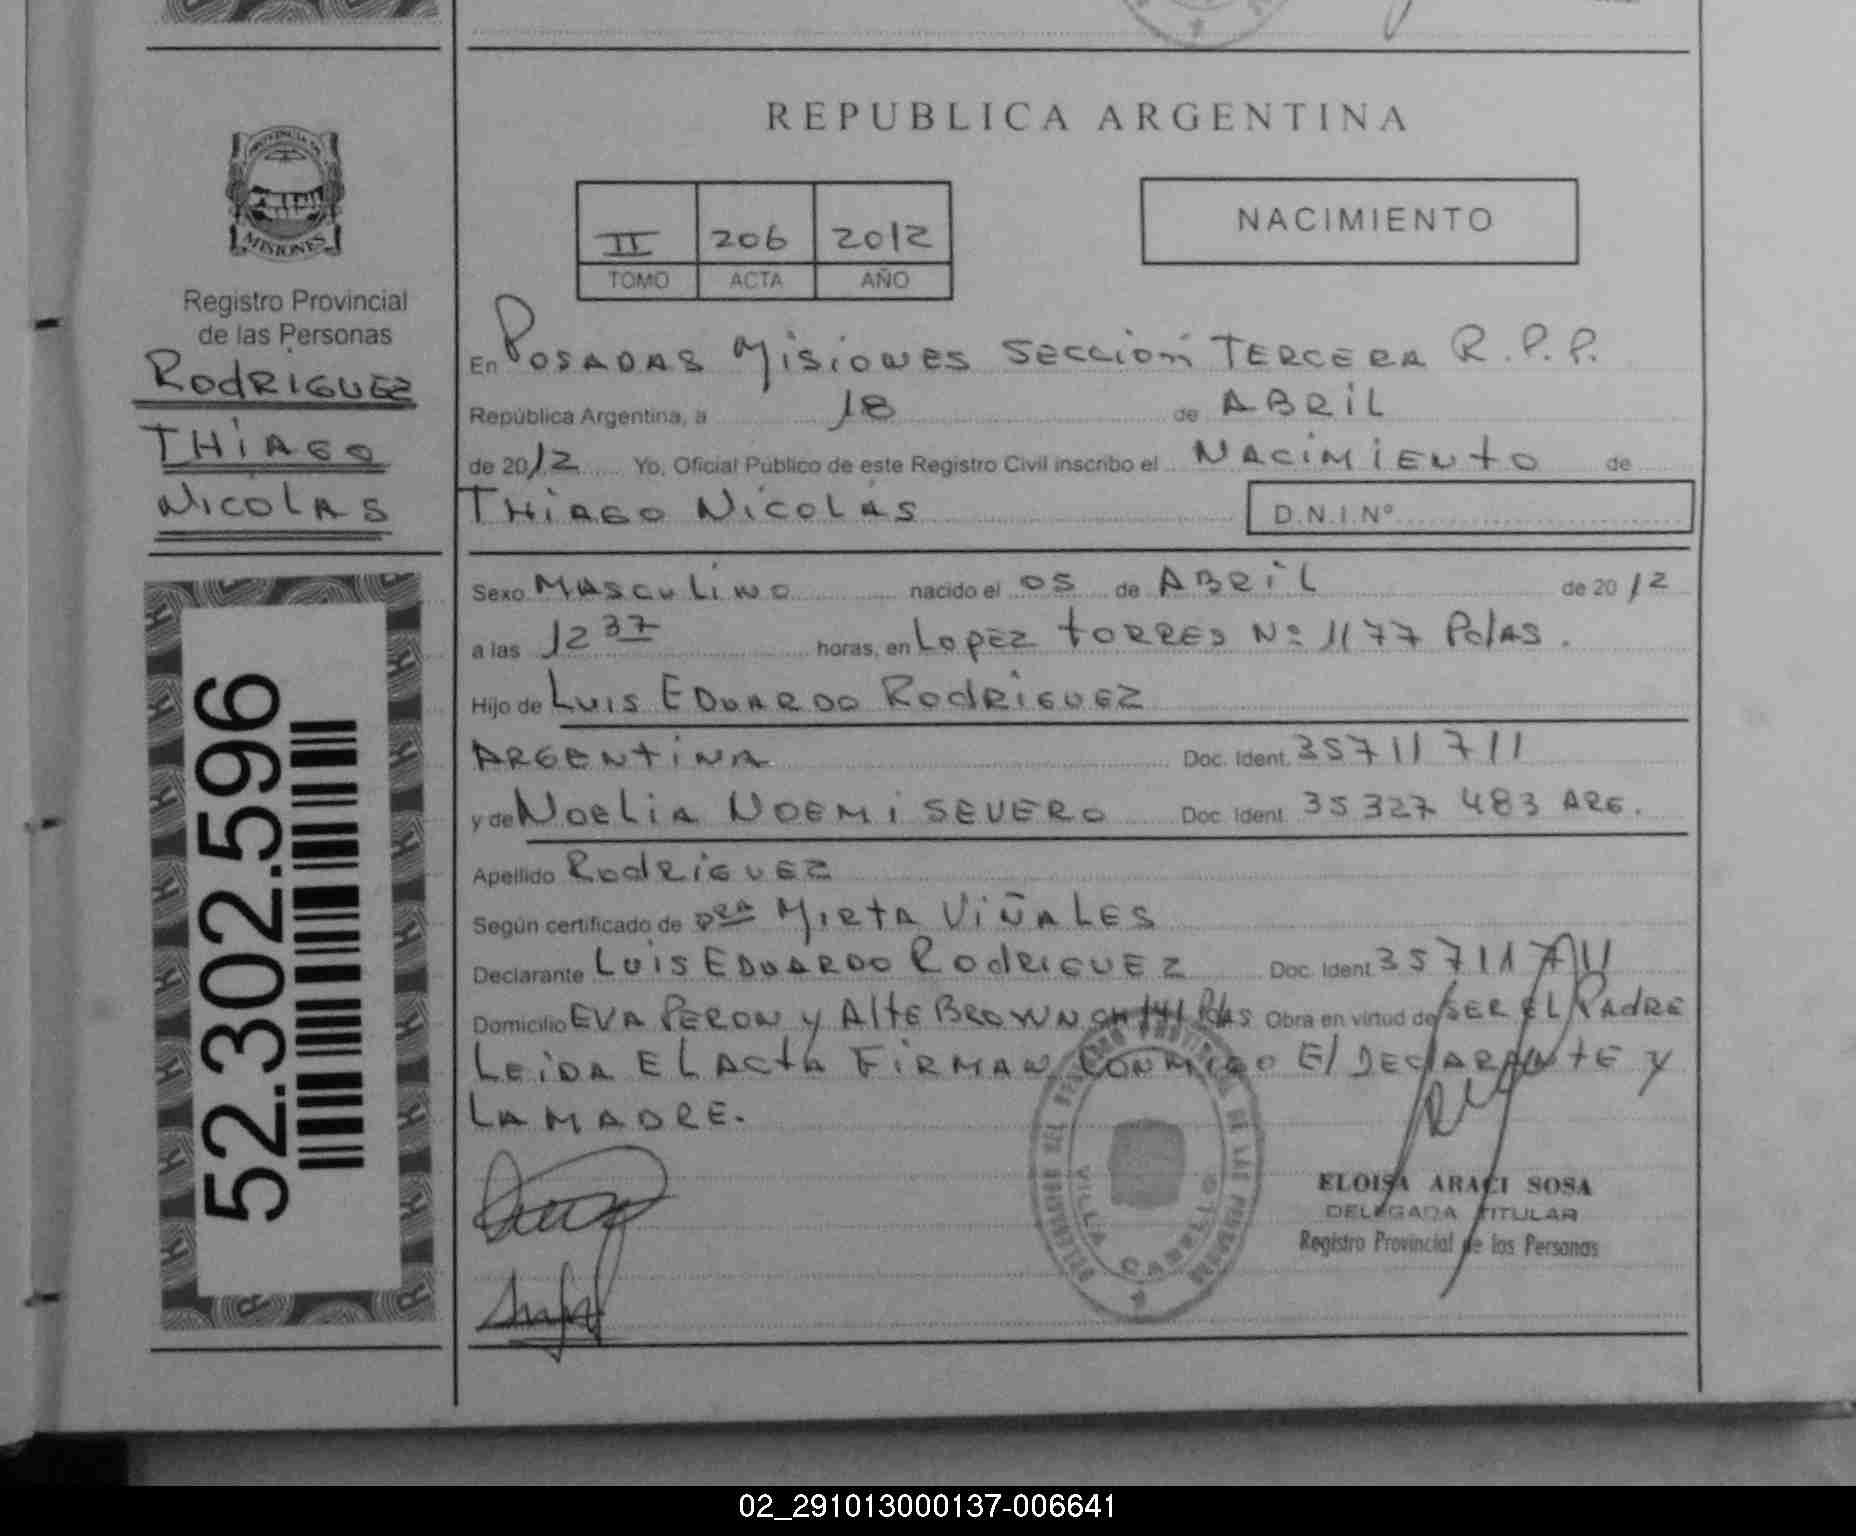 REPUBLICA ARGENTINA
PROVINCIA DE
MISIONES
Registro Provincial
de las Personas
RODRIGUEZ
THIAGO
NICOLAS
52.302.596
II 206 2012
TOMO ACTA AÑO
NACIMIENTO
En POSADAS MISIONES SECCION TERCERA R.P.P.
República Argentina, a 18 de ABRIL
de 2012 Yo, Oficial Público de este Registro Civil inscribo el NACIMIENTO de
THIAGO NICOLÁS D.N.I.Nº
Sexo MASCULINO nacido el 05 de ABRIL de 2012
a las 12 37 horas, en LOPEZ TORRES Nº 1177 Pdas.
Hijo de LUIS EDUARDO RODRIGUEZ
ARGENTINA Doc. Ident. 35711711
y de NOELIA NOEMI SEVERO Doc. Ident. 35327483 ARG.
Apellido RODRIGUEZ
Según certificado de DRA MIRTA VIÑALES
Declarante LUIS EDUARDO RODRIGUEZ Doc. Ident 35711711
Domicilio EVA PERON y AltE BROWN CH 141 Pdas Obra en virtud de SER EL PADRE
LEIDA EL ACTA FIRMAN CONMIGO El DECLARANTE Y
LA MADRE.
VILLA CABELLO
ELOISA ARACI SOSA
DELEGADA TITULAR
Registro Provincial de las Personas
02_291013000137-006641